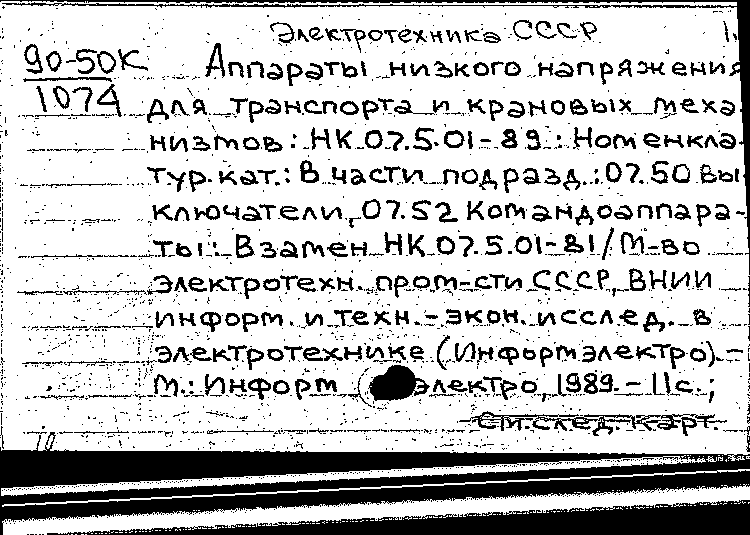 Электротехника СССР 1.
90-50К Аппараты низкого напряжения
1074 для транспорта и крановых меха-
низмов: НК 07.5.01-89: Номенкла-
тур. кат.: В части подразд.: 07.50 Вы-
ключатели, 07.52 Командоаппара-
ты: Взамен НК 07.5.01-81/М-во
электротехн. пром-сти СССР, ВНИИ
информ. и техн.-экон. исслед. в
электротехнике (Информэлектро). –
М.: Информэлектро, 1989. – 11с.;
См. след. карт.
10